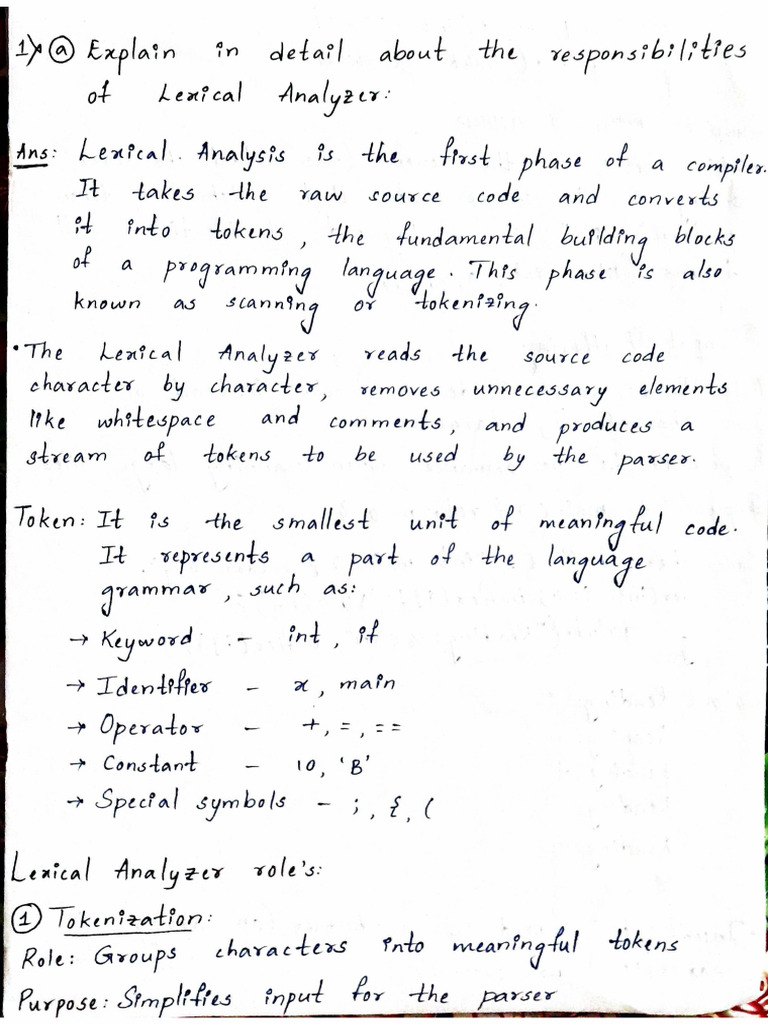 1) ⓐ Explain in detail about the responsibilities
of Lexical Analyzer:
Ans: Lexical Analysis is the first phase of a compiler.
It takes the raw source code and converts
it into tokens, the fundamental building blocks
of a programming language. This phase is also
known as scanning or tokenizing.
• The Lexical Analyzer reads the source code
character by character, removes unnecessary elements
like whitespace and comments, and produces a
stream of tokens to be used by the parser.
Token: It is the smallest unit of meaningful code.
It represents a part of the language
grammar, such as:
→ Keyword - int, if
→ Identifier - x, main
→ Operator - +, =, ==
→ Constant - 10, 'B'
→ Special symbols - ;, {, (
Lexical Analyzer role's:
① Tokenization:
Role: Groups characters into meaningful tokens
Purpose: Simplifies input for the parser